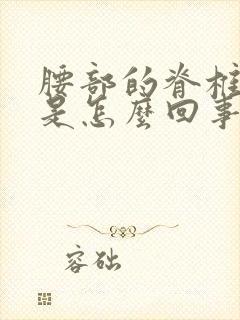 腰部的脊柱
是怎麼回事
容础